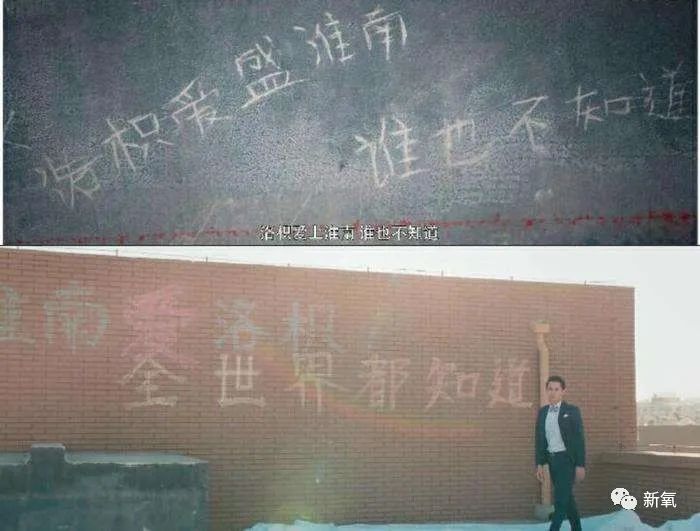 洛枳爱盛淮南
谁也不知道
洛枳爱上淮南 谁也不知道
淮南爱洛枳
全世界都知道
新氧